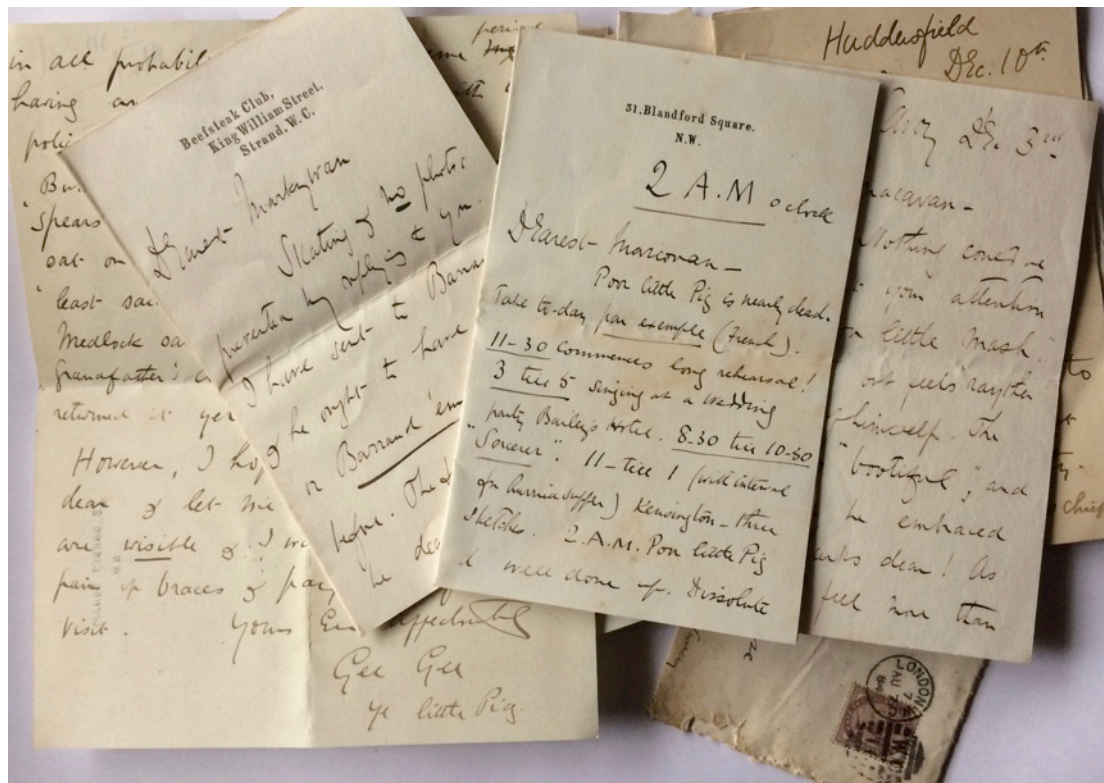 in all probabil
period
having an
polic
Bu
Spears
sat on
least sa
Medlock sa
Grandfather's
returned it yer
However, I hop
dear & let me
are visible & I
pair of braces & pay
Visit.
Yours affectionately
Gee Gee
ye little Pig
Beefsteak Club,
King William Street,
Strand, W.C.
Dearest Markywan
Skating & no photos
prevented my replying to you.
I have sent to Barra
& he ought to have
or Barraud 'em
before. The
he dea
31, Blandford Square.
N.W.
2 A.M o'clock
Dearest Marcovan –
Poor little Pig is nearly dead.
Take to-day par exemple (French).
11-30 commences long rehearsal!
3 till 5 singing at a wedding
party Bailey's Hotel. 8.30 till 10-30
"Sorcerer". 11 – till 1 (with interval
for hurried supper) Kensington – three
Sketches. 2.A.M. Poor little Pig
well done up. Dissolute
Huddersfield
Dec. 10th
Dec. 3rd
acavan –
Nothing could've
your attention
little mash.
but feels rayther
himself. The
"bootiful", and
he embraced
anks dear! As
feel more than
to
chief
LONDON
7
84